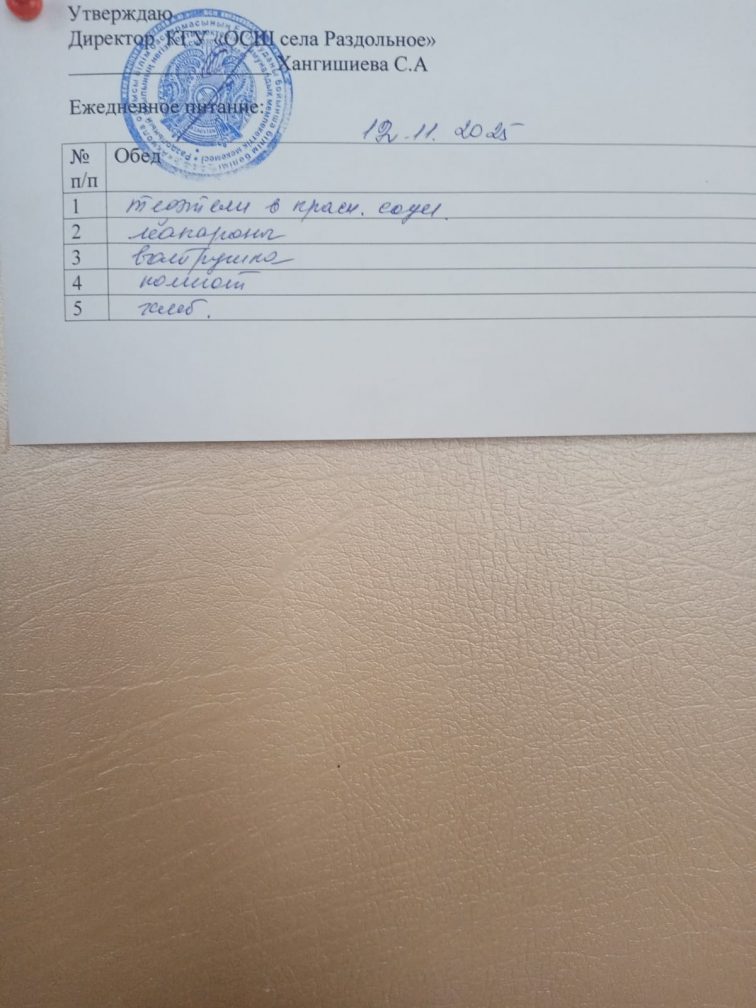 Утверждаю
Директор КГУ «ОСШ села Раздольное»
Хангишиева С.А
Ежедневное питание:
12.11.2025
№ п/п Обед
1 тефтели в красн. соус.
2 макароны
3 ватрушка
4 компот
5 хлеб.